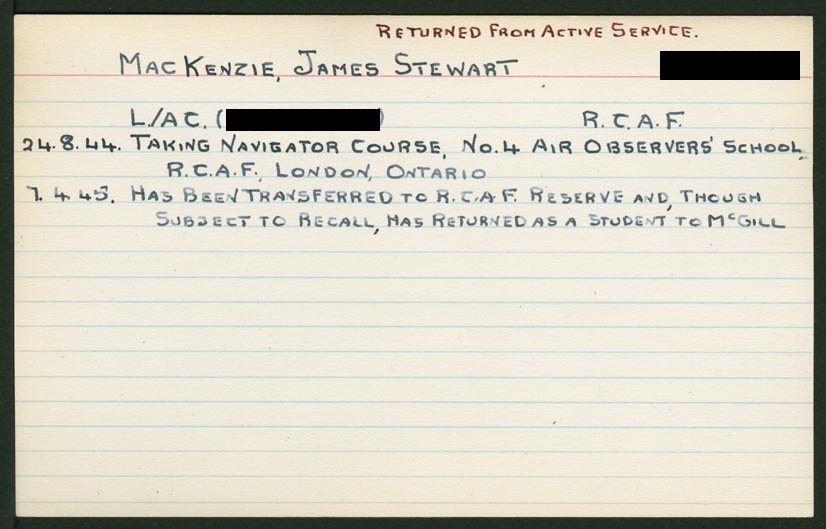 RETURNED FROM ACTIVE SERVICE.
MACKENZIE, JAMES STEWART
L./AC. ( ) R.C.A.F.
24.8.44. TAKING NAVIGATOR COURSE, NO.4 AIR OBSERVERS' SCHOOL,
R.C.A.F., LONDON, ONTARIO
7.4.45. HAS BEEN TRANSFERRED TO R.C.A.F. RESERVE AND, THOUGH
SUBJECT TO RECALL, HAS RETURNED AS A STUDENT TO MCGILL